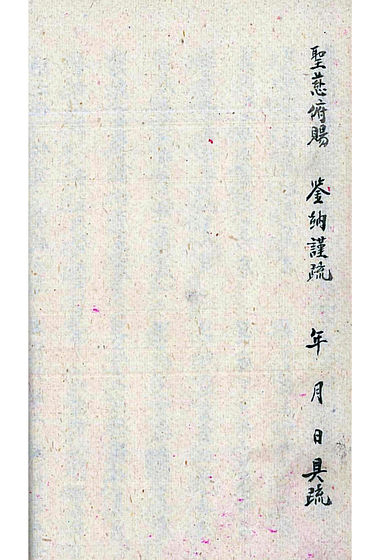 聖慈俯賜　鉴納謹疏　年　月　日具疏